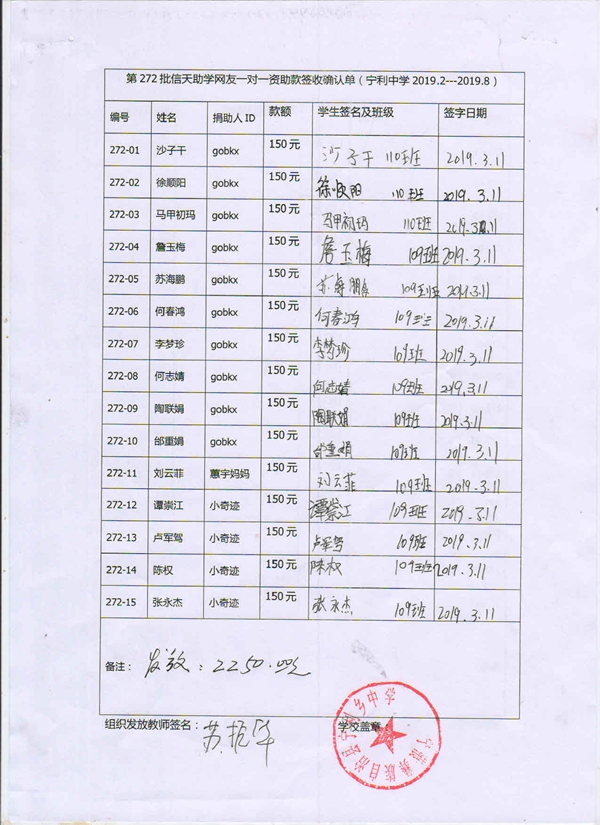 第272批信天助学网友一对一资助款签收确认单（宁利中学2019.2---2019.8）
编号 姓名 捐助人ID 款额 学生签名及班级 签字日期
272-01 沙子干 gobkx 150元 沙子干 110班 2019.3.11
272-02 徐顺阳 gobkx 150元 徐顺阳 110班 2019.3.11
272-03 马甲初玛 gobkx 150元 马甲初玛 110班 2019.3.11
272-04 詹玉梅 gobkx 150元 詹玉梅 109班 2019.3.11
272-05 苏海鹏 gobkx 150元 苏海鹏 109班 2019.3.11
272-06 何春鸿 gobkx 150元 何春鸿 109班 2019.3.11
272-07 李梦珍 gobkx 150元 李梦珍 109班 2019.3.11
272-08 何志婧 gobkx 150元 何志婧 109班 2019.3.11
272-09 陶联娟 gobkx 150元 陶联娟 109班 2019.3.11
272-10 邰重娟 gobkx 150元 邰重娟 109班 2019.3.11
272-11 刘云菲 蕙宇妈妈 150元 刘云菲 109班 2019.3.11
272-12 谭崇江 小奇迹 150元 谭崇江 109班 2019.3.11
272-13 卢军驾 小奇迹 150元 卢军驾 109班 2019.3.11
272-14 陈权 小奇迹 150元 陈权 109班 2019.3.11
272-15 张永杰 小奇迹 150元 张永杰 109班 2019.3.11
备注： 发放：2250.00元
组织发放教师签名： 苏 学校盖章：
宁蒗彝族自治县宁利乡中学